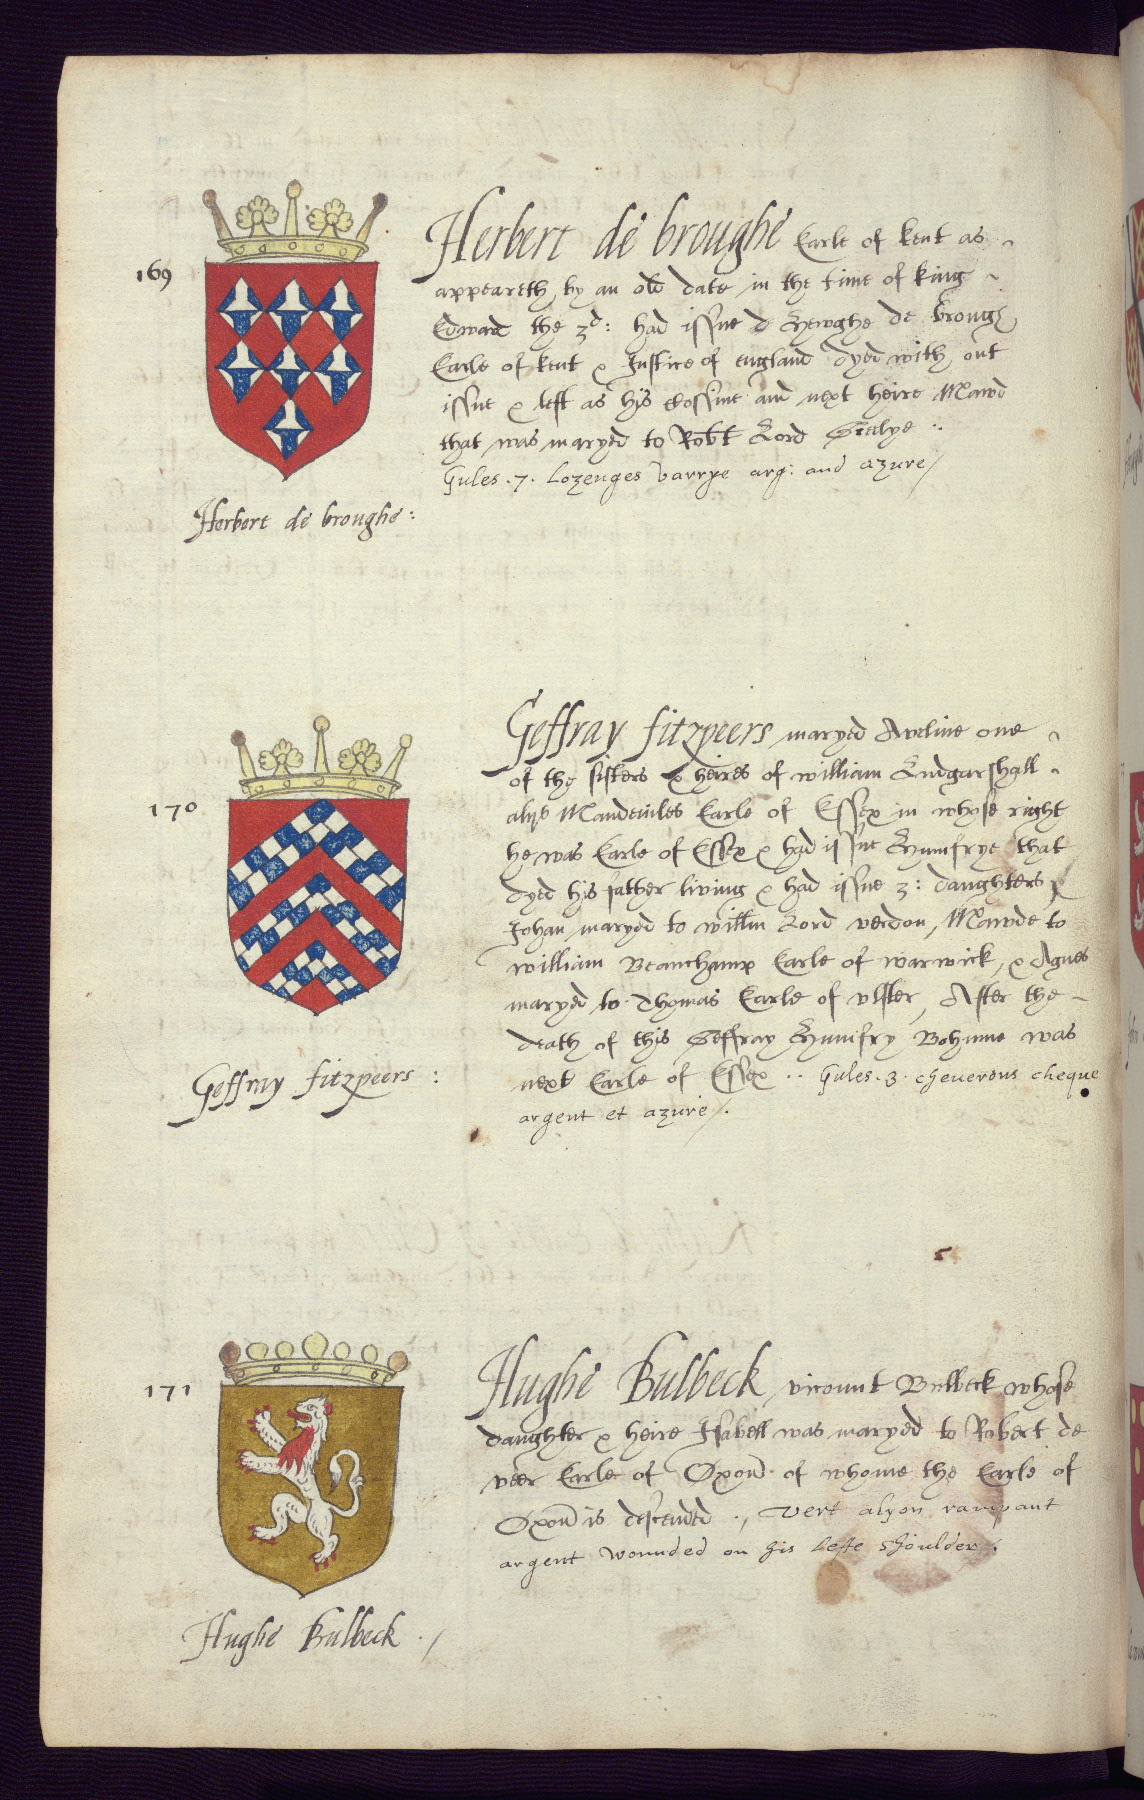 169
Herbert de broughe Earle of kent as
appeareth by an old date in the time of king
Edward the 3d: had issue Hewghe de Brough
Earle of kent & Justice of england dyed with out
issue & left as his Cossine and next heire Mawd
that was maryed to Robt Lord Grelye ..
Gules .7. Lozenges varrye arg: and azure/
Herbert de broughe:
170
Geffray fitzpeers maryed Aveline one
of the sisters & heires of william Ludgarshall
als Mandeviles Earle of Essex in whose right
he was Earle of Essex & had issue Humfrye that
dyed his father living & had issue 3: daughters
Johan maryed to willm Lord verdon, Mawde to
william Beauchamp Earle of warwick, & Agnes
maryed to Thomas Earle of vlster, After the
death of this Geffray Humfry Bohume was
next Earle of Essex .. Gules .3. cheuerons cheque
argent et azure/.
Geffray fitzpeers:
171
Hughe Bulbeck vicount Bulbeck whose
daughter & heire Isabell was maryed to Robert de
veer Earle of Oxon of whome the Earle of
Oxon is descended ., Vert a lyon rampant
argent wounded on his lefte shoulder.
Hughe Bulbeck ./